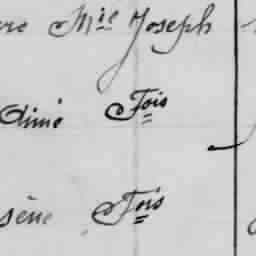 re Mie Joseph
Aimé Fois
sène Fois